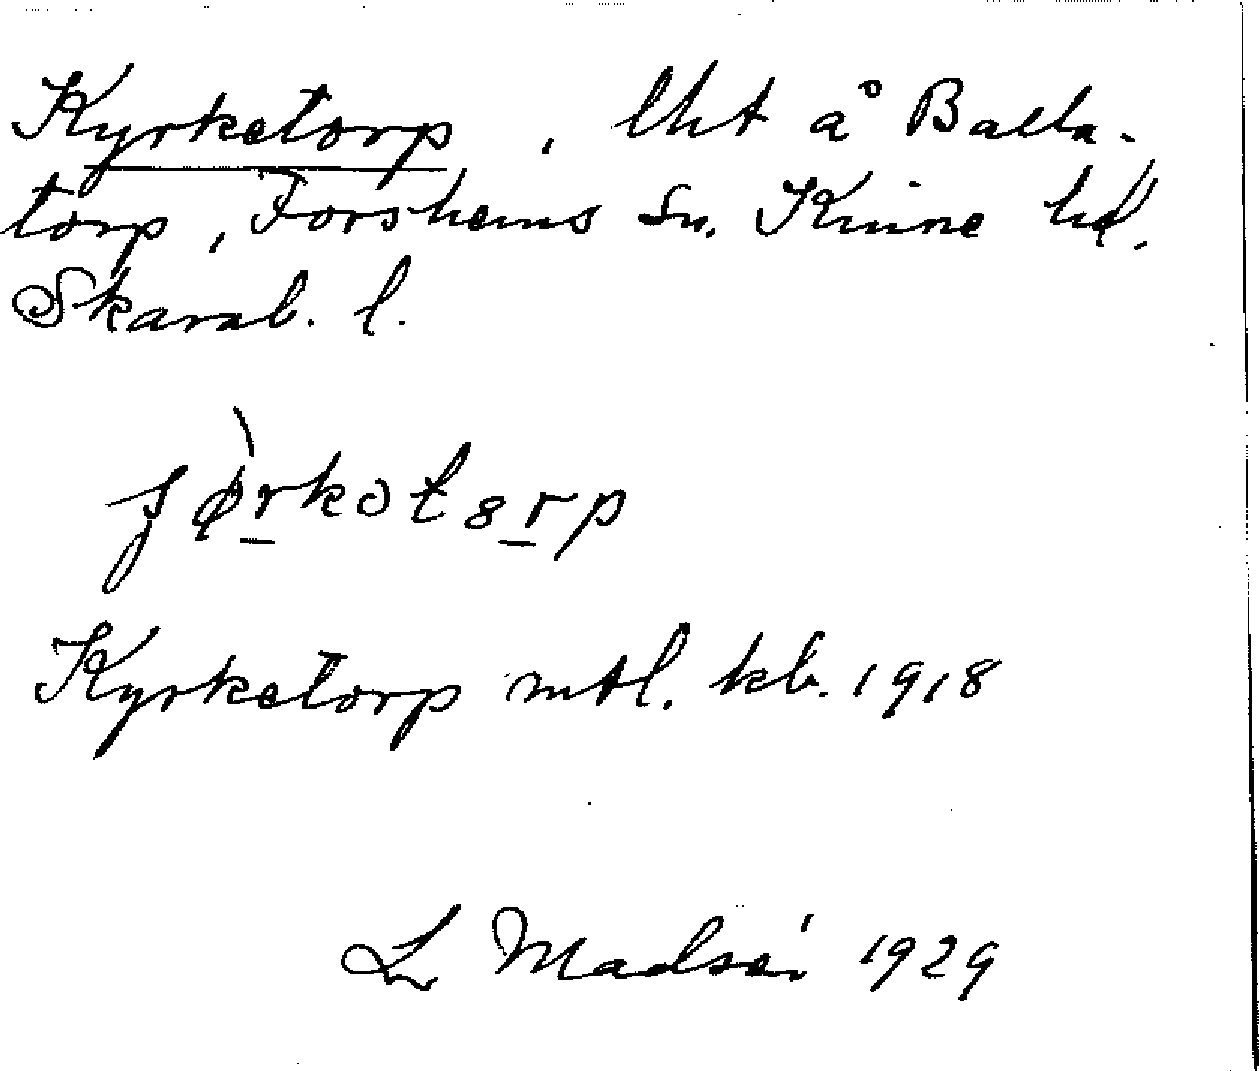 Kyrketorp, lht å Balla-
torp, Forshems Sn. Kinne hd.
Skarab. l.
Kyrketorp mtl. kb. 1918
L Madsén 1929